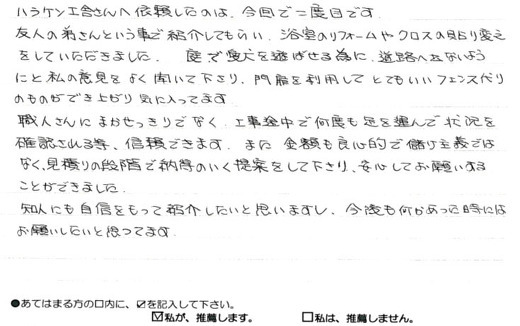 ハラケン工舎さんへ依頼したのは、今回で二度目です。
友人の弟さんという事で紹介してもらい、浴室のリフォームやクロスの張り変え
をしていただきました。 庭で愛犬を遊ばせる為に、道路へ出ないよう
にと私の意見をよく聞いて下さり、門扉を利用してとてもいいフェンス代り
のものができ上がり気に入ってます。
職人さんにまかせっきりでなく、工事途中で何度も足を運んで状況を
確認される等、信頼できます。また金額も良心的で儲け主義では
なく、見積りの段階で納得のいく提案をして下さり、安心してお願いする
ことができました。
知人にも自信をもって紹介したいと思いますし、今後も何かあった時には
お願いしたいと思ってます。
●あてはまる方の口内に、☑を記入して下さい。
☑私が、推薦します。 □私は、推薦しません。